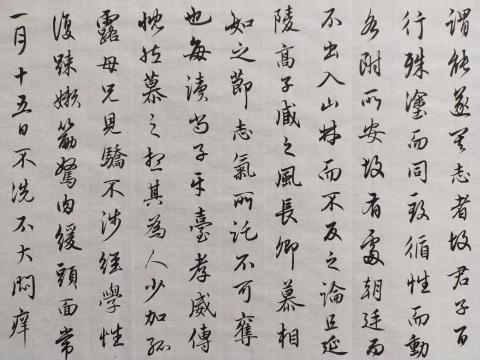 謂能遂其志者故君子百
行殊塗而同致循性而動
各附所安故有處朝廷而
不出入山林而不反之論且延
陵高子臧之風長卿慕相
如之節志氣所託不可奪
也每讀尚子平臺孝威傳
慨然慕之想其為人少加孤
露母兄見驕不涉經學性
復疎嬾筋駑肉緩頭面常
一月十五日不洗不大悶痒